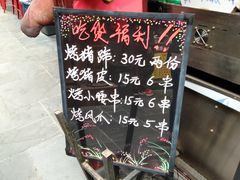 吃货福利!!
烤猪蹄：30元两份
烤猪皮：15元6串
烤小腰串：15元6串
烤凤爪：15元5串